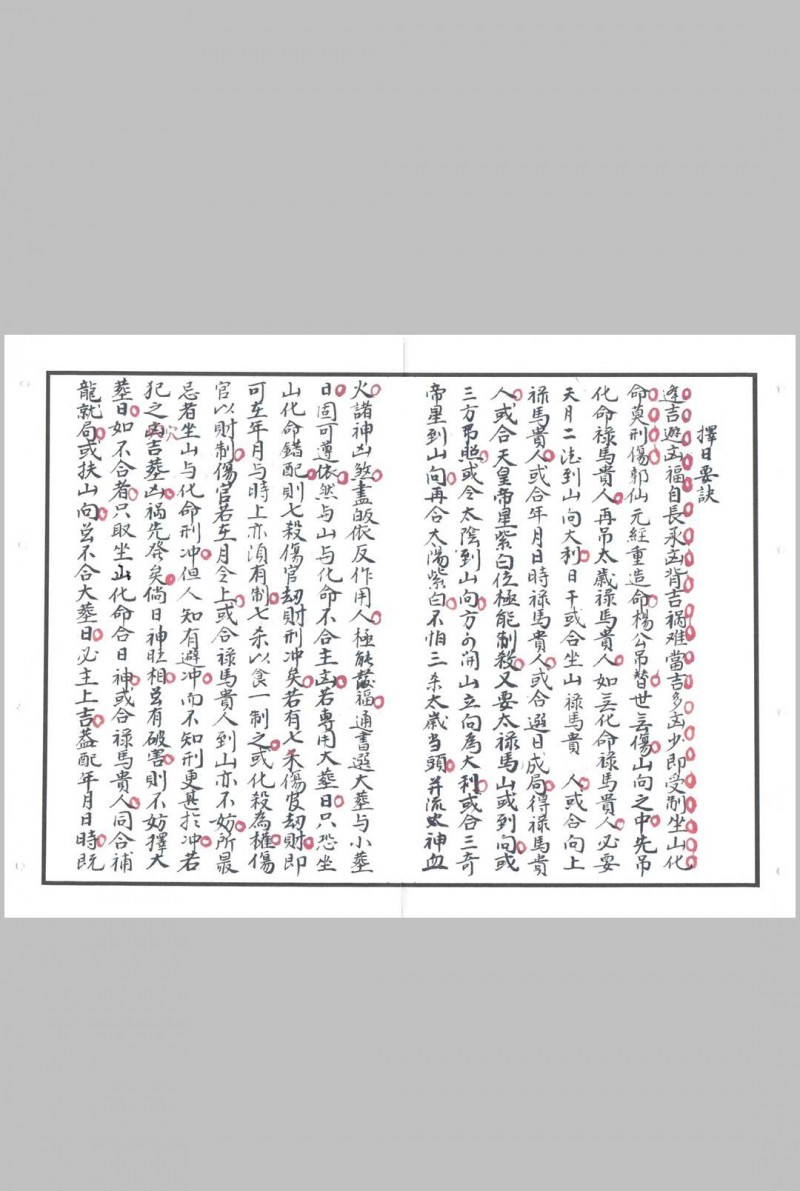 擇日要訣
逢吉避凶福自長承凶背吉祸难當吉多凶少即受制坐山化
命莫刑傷郭仙元經重造命楊公吊替世無傷山向之中先吊
化命禄馬貴人再吊太歲禄馬貴人如無化命禄馬貴人必要
天月二德到山向大利日干或合坐山禄馬貴 人或合向上
禄馬貴人或合年月日時禄馬貴人或合選日成局得禄馬貴
人或合天皇帝星紫白位極能制殺又要太禄馬山或到向或
三方吊照或令太陰到山向方可開山立向為大利或合三奇
帝星到山向再合太陽紫白不怕三杀太歲當頭并流太神血
火諸神凶煞盡皈依反作用人極能發福通書選大葬与小葬
日固可遵依然与山与化命不合主凶若專用大葬日只恐坐
山化命錯配則七殺傷官劫財刑冲矣若有七杀傷官劫財即
可在年月与時上亦須有制七杀以食一制之或化殺為權傷
官以財制傷官若在月令上或合禄馬貴人到山亦不妨所最
忌者坐山与化命刑冲但人知有避冲而不知刑更甚於冲若
犯之凶吉葬凶祸先發矣倘日神旺相总有破害則不妨擇大
葬日如不合者只取坐山化命合日神或合禄馬貴人同合補
龍就局或扶山向总不合大葬日必主上吉葢配年月日時既